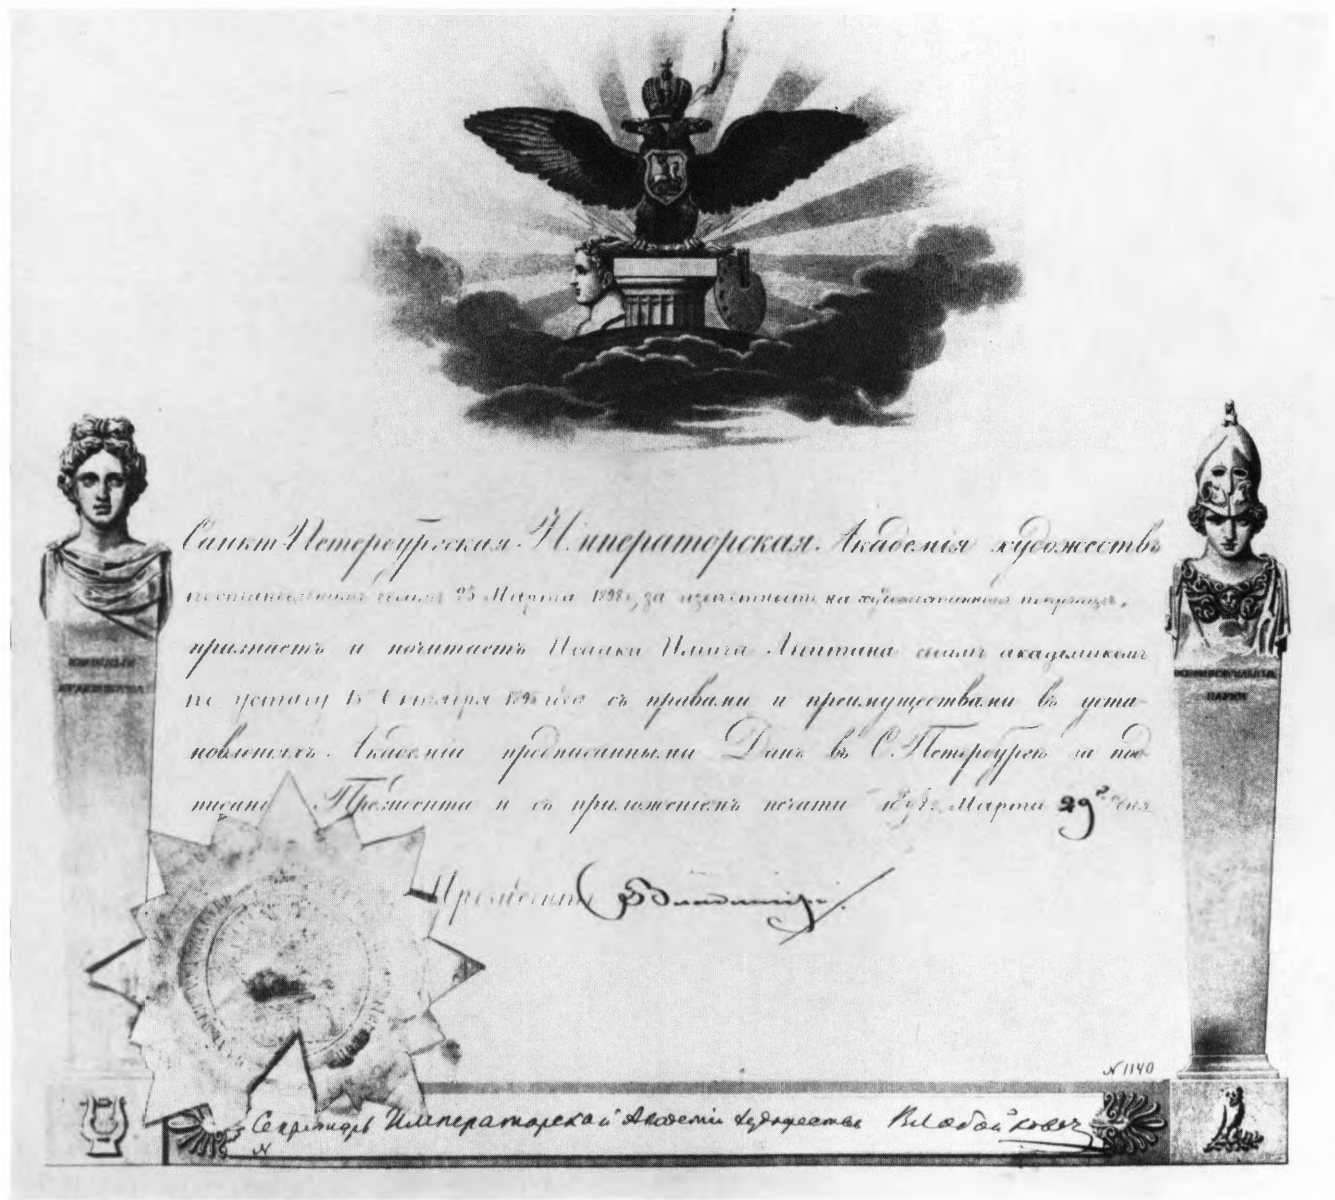 Санктъ Петербургская Императорская Академія художествъ
25 Марта 1898г, за извѣстность на художественномъ поприщѣ,
признаетъ и почитаетъ Исаака Ильича Левитана своимъ академикомъ
по уставу 15 Октября 1893 года съ правами и преимуществами въ уста-
новленіяхъ Академіи предписанными Данъ въ С. Петербургѣ за под-
писаніемъ Президента и съ приложеніемъ печати 1898г. Марта 29го дня
Президентъ Владиміръ.
N 1140
Секретарь Императорской Академіи художествъ ВЛобойковъ
N